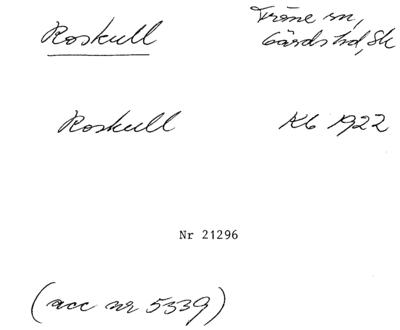 Roskull
Träne sn,
Gärds hd, Sk
Roskull
Kb 1922
Nr 21296
(acc nr 5339)